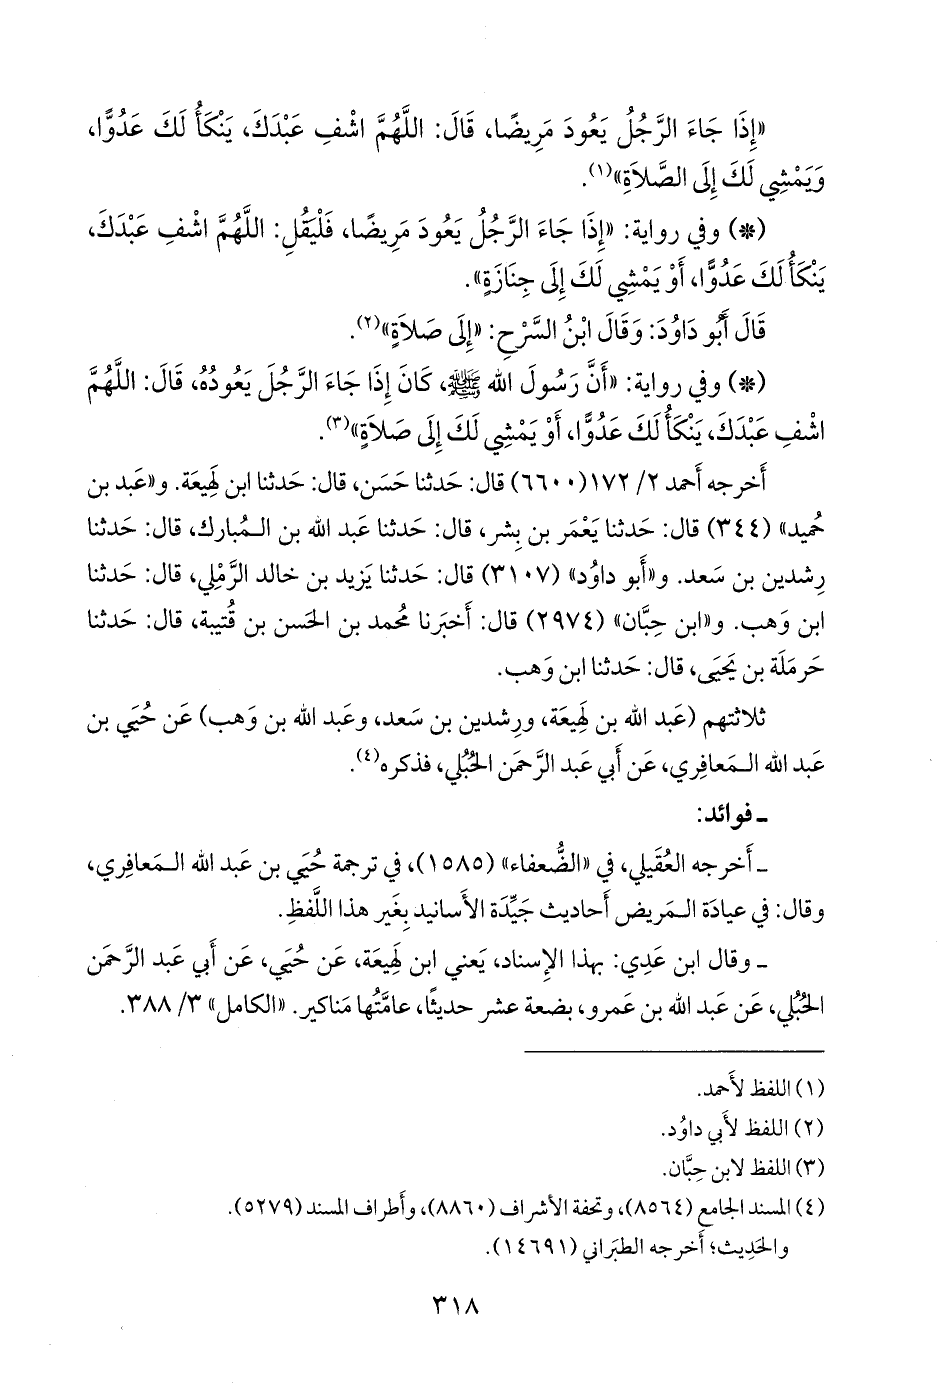 «إِذَا جَاءَ الرَّجُلُ يَعُودَ مَرِيضًا، قَالَ: اللَّهُمَّ اشْفِ عَبْدَكَ، يَنْكَأُ لَكَ عَدُوًّا،
وَيَمْشِي لَكَ إِلَى الصَّلاَةِ»(١).
(*) وفي رواية: «إِذَا جَاءَ الرَّجُلُ يَعُودَ مَرِيضًا، فَلْيَقُلِ: اللَّهُمَّ اشْفِ عَبْدَكَ،
يَنْكَأُ لَكَ عَدُوًّا، أَوْ يَمْشِي لَكَ إِلَى جِنَازَةٍ».
قَالَ أَبُو دَاوُدَ: وَقَالَ ابْنُ السَّرْحِ: «إِلَى صَلاَةٍ»(٢).
(*) وفي رواية: «أَنَّ رَسُولَ الله ﷺ، كَانَ إِذَا جَاءَ الرَّجُلَ يَعُودُهُ، قَالَ: اللَّهُمَّ
اشْفِ عَبْدَكَ، يَنْكَأُ لَكَ عَدُوًّا، أَوْ يَمْشِي لَكَ إِلَى صَلاَةٍ»(٣).
أَخرجه أَحمد ٢/ ١٧٢(٦٦٠٠) قال: حَدثنا حَسَن، قال: حَدثنا ابن لَهِيعَة. و«عَبد بن
حُميد» (٣٤٤) قال: حَدثنا يَعْمَر بن بِشر، قال: حَدثنا عَبد الله بن الـمُبارك، قال: حَدثنا
رِشدين بن سَعد. و«أَبو داوُد» (٣١٠٧) قال: حَدثنا يَزيد بن خالد الرَّمْلِي، قال: حَدثنا
ابن وَهب. و«ابن حِبَّان» (٢٩٧٤) قال: أَخبَرنا مُحمد بن الحَسن بن قُتيبة، قال: حَدثنا
حَرمَلَة بن يَحيَى، قال: حَدثنا ابن وَهب.
ثلاثتهم (عَبد الله بن لَهِيعَة، ورِشدين بن سَعد، وعَبد الله بن وَهب) عَن حُيَي بن
عَبد الله الـمَعافِري، عَن أَبي عَبد الرَّحمَن الحُبُلي، فذكره(٤).
ـ فوائد:
ـ أَخرجه العُقَيلي، في «الضُّعفاء» (١٥٨٥)، في ترجمة حُيَي بن عَبد الله الـمَعافِري،
وقال: في عيادَة الـمَريض أَحاديث جَيِّدَة الأَسانيد بِغَير هذا اللَّفظِ.
ـ وقال ابن عَدِي: بهذا الإِسناد، يَعني ابن لَهِيعَة، عَن حُيَي، عَن أَبي عَبد الرَّحمَن
الحُبُلي، عَن عَبد الله بن عَمرو، بضعة عشر حديثًا، عامَّتُها مَناكير. «الكامل» ٣/ ٣٨٨.
(١) اللفظ لأَحمد.
(٢) اللفظ لأَبي داوُد.
(٣) اللفظ لابن حِبَّان.
(٤) المسند الجامع (٨٥٦٤)، وتحفة الأشراف (٨٨٦٠)، وأَطراف المسند (٥٢٧٩).
والحَدِيث؛ أَخرجه الطبَراني (١٤٦٩١).
٣١٨